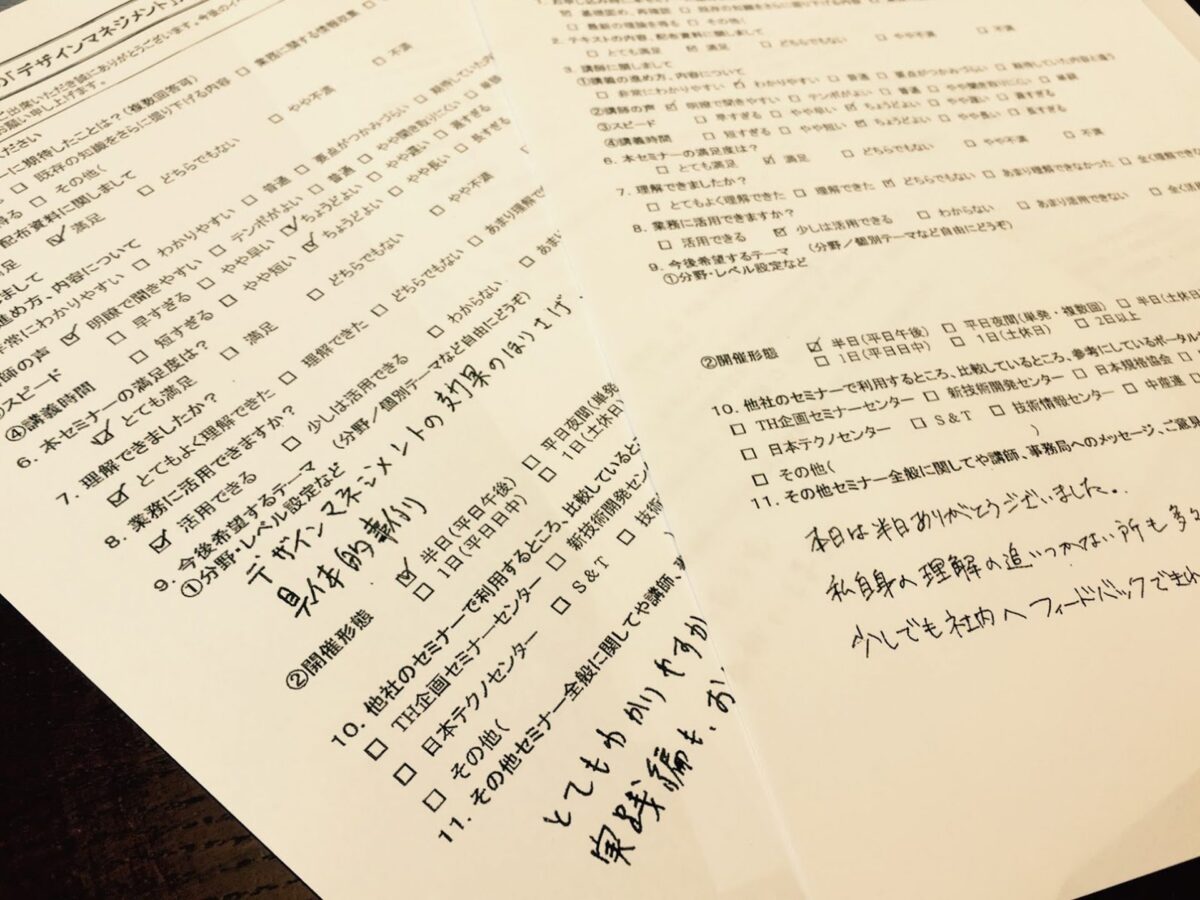 の「デザインマネジメント」
ご出席いただき誠にありがとうございます。今後のイ
お願い申し上げます。
ください
ーに期待したことは?(複数回答可)
□ 既存の知識をさらに掘り下げる内容 □ 業務に関する情報収集
得る □ その他(
配布資料に関しまして
満足 □ どちらでもない □ やや不満 □ 不満
進め方、内容について
非常にわかりやすい □ わかりやすい □ 普通 □ 要点がつかみづらい □ 期待していた内
講師の声 ☑ 明瞭で聞きやすい □ テンポがよい □ 普通 □ やや聞き取りにくい □ 単調
スピード □ 早すぎる □ やや早い ☑ ちょうどよい □ やや遅い □ 遅すぎる
④講義時間 □ 短すぎる □ やや短い ☑ ちょうどよい □ やや長い □ 長すぎる
6. 本セミナーの満足度は?
☑ とても満足 □ 満足 □ どちらでもない □ やや不満
7. 理解できましたか?
☑ とてもよく理解できた □ 理解できた □ どちらでもない □ あまり理解で
8. 業務に活用できますか?
☑ 活用できる □ 少しは活用できる □ わからない □ あまり
9. 今後希望するテーマ (分野/個別テーマなど自由にどうぞ)
①分野・レベル設定など
デザインマネジメントの効果のほりさげ.
具体的事例
②開催形態 ☑ 半日(平日午後) □ 平日夜間(単発
□ 1日(平日日中) □ 1日(土休日)
10. 他社のセミナーで利用するところ、比較しているところ
□ TH企画セミナーセンター □ 新技術開発セン
□ 日本テクノセンター □ S&T □ 技術
□ その他(
11. その他セミナー全般に関してや講師、事
とてもわかりやすか
実践編も、お
☑ 基礎固め、再確認 □ 既存の知識をさらに掘り下げる内容
□ 最新の理論を得る □ その他(
2. テキストの内容、配布資料に関しまして
□ とても満足 ☑ 満足 □ どちらでもない □ やや不満 □ 不満
3. 講師に関しまして
①講義の進め方、内容について
□ 非常にわかりやすい ☑ わかりやすい □ 普通 □ 要点がつかみづらい □ 期待していた内容と違う
②講師の声 ☑ 明瞭で聞きやすい □ テンポがよい □ 普通 □ やや聞き取りにくい □ 単調
③スピード □ 早すぎる □ やや早い ☑ ちょうどよい □ やや遅い □ 遅すぎる
④講義時間 □ 短すぎる □ やや短い ☑ ちょうどよい □ やや長い □ 長すぎる
6. 本セミナーの満足度は?
□ とても満足 ☑ 満足 □ どちらでもない □ やや不満 □ 不満
7. 理解できましたか?
□ とてもよく理解できた □ 理解できた ☑ どちらでもない □ あまり理解できなかった □ 全く理解できな
8. 業務に活用できますか?
□ 活用できる ☑ 少しは活用できる □ わからない □ あまり活用できない □ 全く活用
9. 今後希望するテーマ (分野/個別テーマなど自由にどうぞ)
①分野・レベル設定など
②開催形態 ☑ 半日(平日午後) □ 平日夜間(単発・複数回) □ 半日(土休日
□ 1日(平日日中) □ 1日(土休日) □ 2日以上
10. 他社のセミナーで利用するところ、比較しているところ、参考にしているポータル
□ TH企画セミナーセンター □ 新技術開発センター □ 日本規格協会 □
□ 日本テクノセンター □ S&T □ 技術情報センター □ 中産連 □
□ その他( )
11. その他セミナー全般に関してや講師、事務局へのメッセージ、ご意見
本日は半日ありがとうございました.
私自身の理解の追いつかない所も多々
少しでも社内へフィードバックできれ